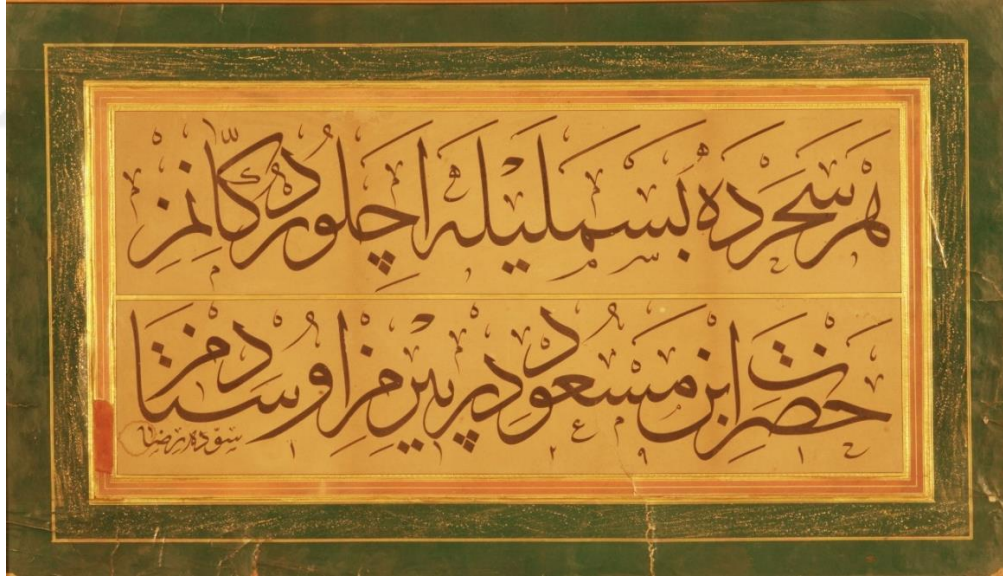 هر سحرده بسمليله اچلور دكّانمز
حضرت ابن مسعوددر پيرمز اوستادمز
سوّده رضا